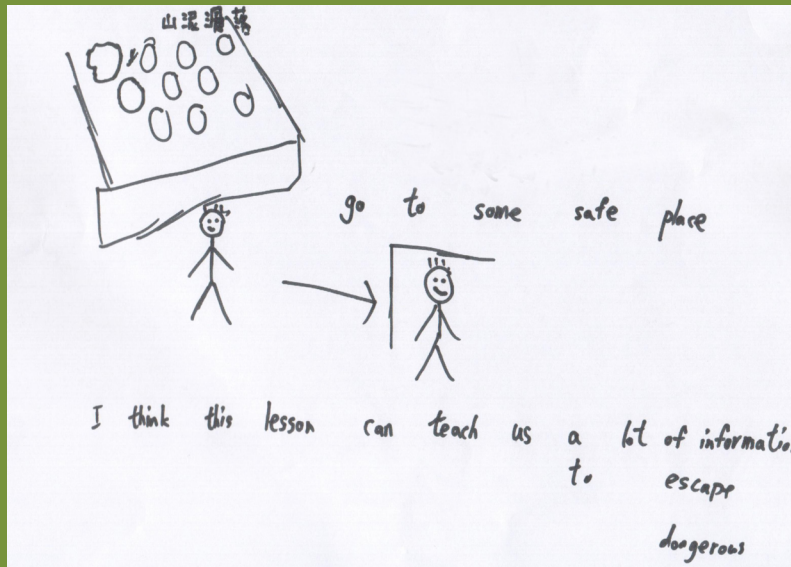 山泥濕落
go to some safe place
I think this lesson can teach us a lot of information
to escape
dangerous